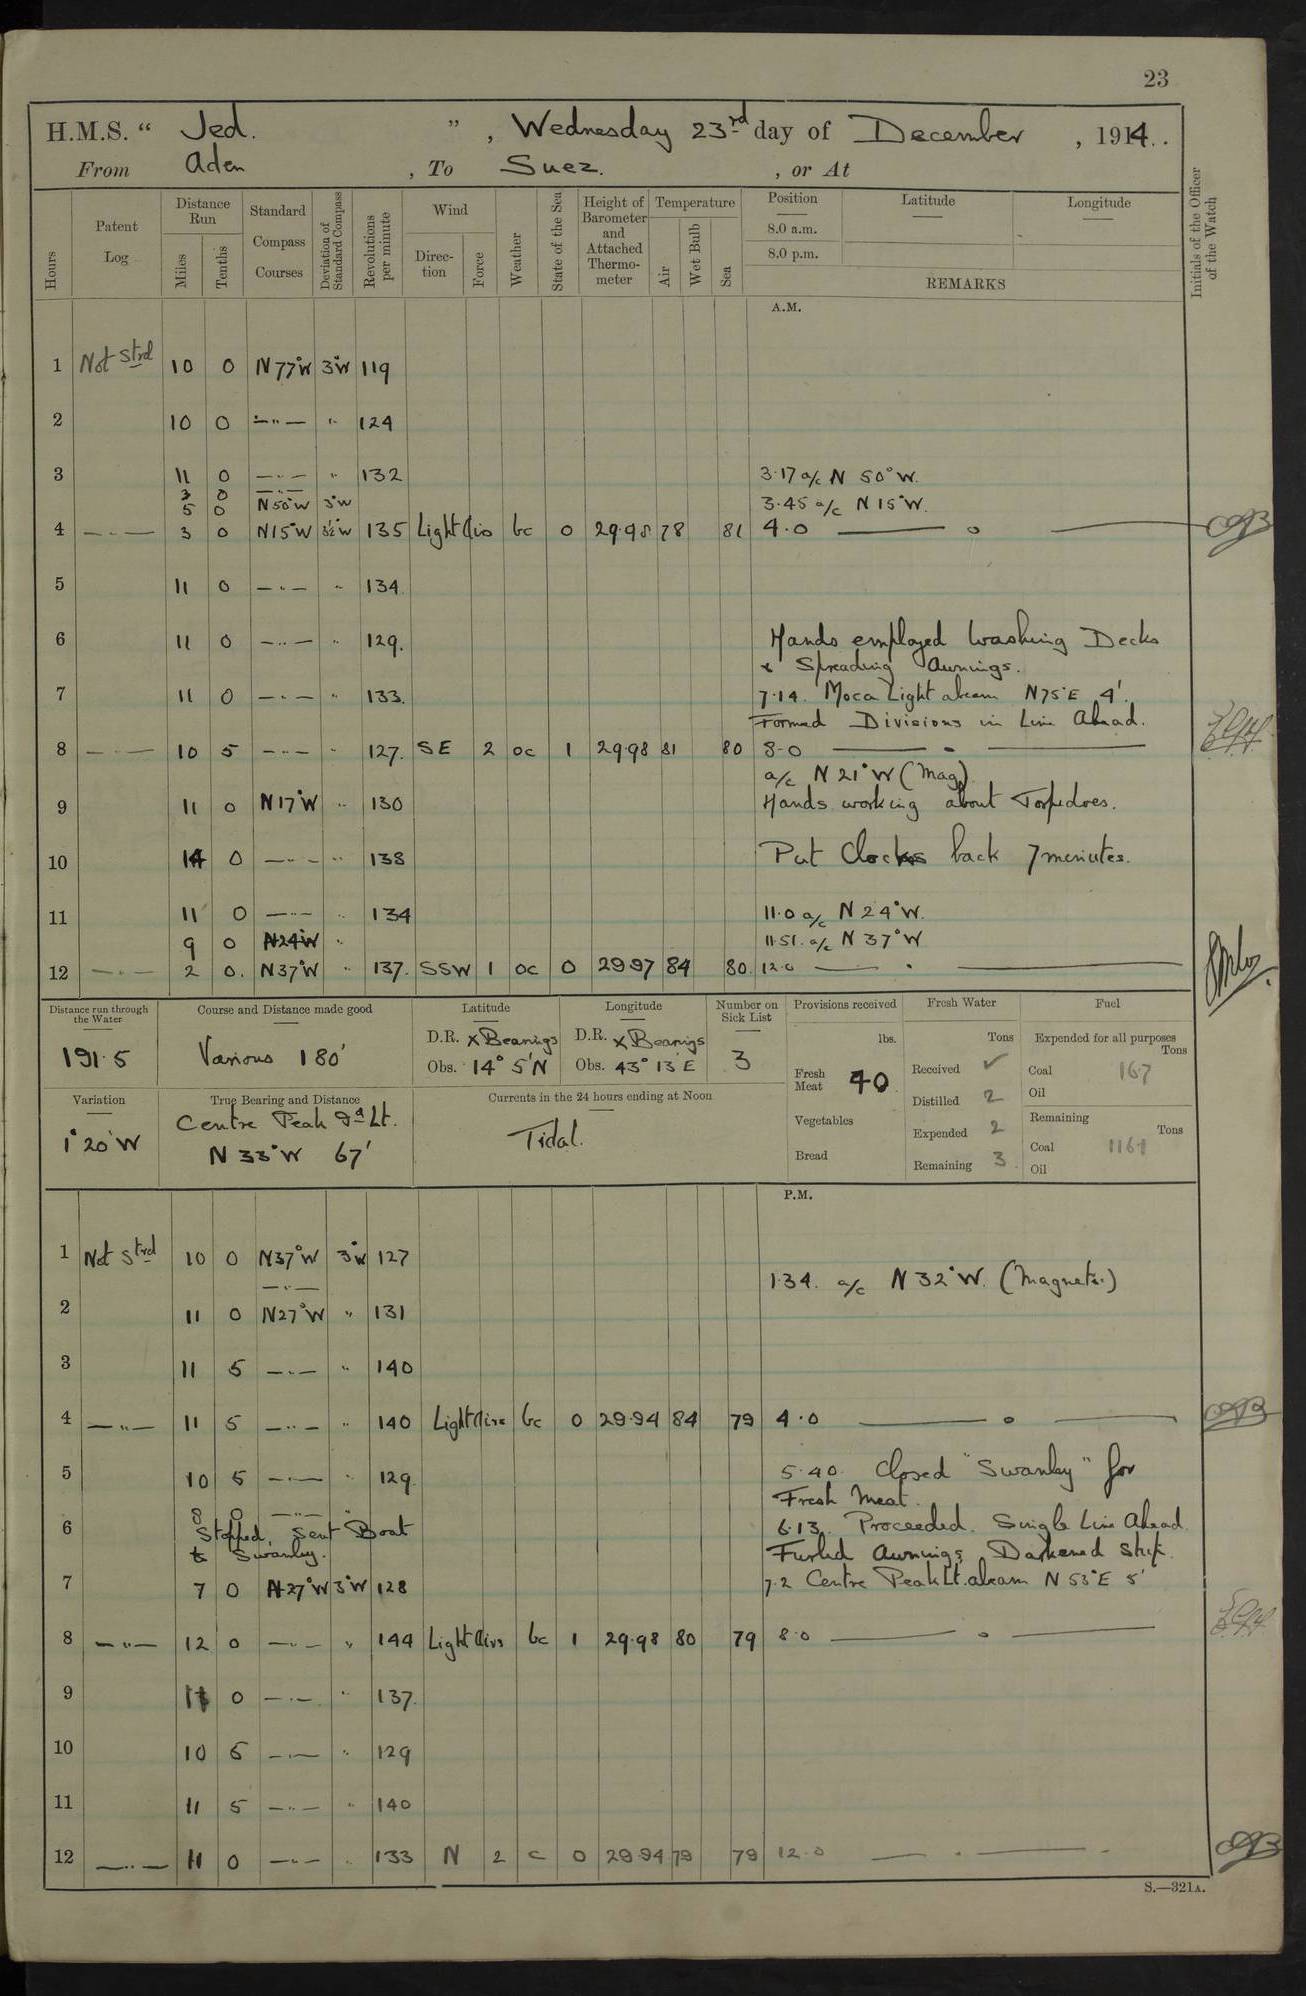 23
H.M.S. “ Jed. ” , Wednesday 23rd day of December , 1914.
From Aden , To Suez. , or At
Hours
Patent Log
Distance Run
Miles
Tenths
Standard Compass Courses
Deviation of Standard Compass
Revolutions per minute
Wind
Direction
Force
Weather
State of the Sea
Height of Barometer and Attached Thermometer
Temperature
Air
Wet Bulb
Sea
Position
8.0 a.m.
8.0 p.m.
Latitude
Longitude
REMARKS
Initials of the Officer of the Watch
A.M.
1 Not Strd 10 0 N77°W 3°W 119
2 10 0 — " — " 124
3 11 0 — " — " 132 3.17 a/c N 50°W.
3 0 — " —
5 0 N50°W 3°W 3.45 a/c N 15°W.
4 — " — 3 0 N15°W 3½°W 135 Light Airs bc 0 29.98 78 81 4.0 — " —
5 11 0 — " — " 134
6 11 0 — " — " 129. Hands employed washing Decks
& Spreading Awnings.
7 11 0 — " — " 133. 7.14. Moca Light abeam N75°E 4'.
Formed Divisions in Line Ahead.
8 — " — 10 5 — " — " 127. SE 2 oc 1 29.98 81 80 8.0 — " —
a/c N 21°W (Mag)
9 11 0 N17°W " 130 Hands working about Torpedoes.
10 11 0 — " — " 138 Put Clocks back 7 minutes.
11 11 0 — " — " 134 11.0 a/c N 24°W.
9 0 N24°W " 11.51. a/c N 37°W
12 — " — 2 0. N37°W " 137. SSW 1 oc 0 29.97 84 80. 12.0 — " —
Distance run through the Water
191.5
Course and Distance made good
Various 180'
Latitude
D.R. x Bearings
Obs. 14° 5'N
Longitude
D.R. x Bearings
Obs. 43° 13'E
Number on Sick List
3
Provisions received
lbs.
Fresh Meat 40
Vegetables
Bread
Fresh Water
Tons
Received ✓
Distilled 2
Expended 2
Remaining 3
Fuel
Expended for all purposes
Tons
Coal 16.7
Oil
Remaining
Tons
Coal
Oil
Variation
1° 20'W
True Bearing and Distance
Centre Peak Id Lt.
N 33°W 67'
Currents in the 24 hours ending at Noon
Tidal.
P.M.
1 Not Strd 10 0 N37°W 3°W 127
— " — 1.34. a/c N 32°W. (Magnetic)
2 11 0 N27°W " 131
3 11 5 — " — " 140
4 — " — 11 5 — " — " 140 Light Airs bc 0 29.94 84 79 4.0 — " —
5 10 5 — " — " 129. 5.40. Closed "Swanley" for
Fresh Meat.
8 0 — " — "
6 Stopped. Sent Boat 6.13. Proceeded. Single Line Ahead
to Swanley. Furled Awnings Darkened Ship.
7 7 0 N27°W 3°W 128 7.2 Centre Peak Lt. abeam N 53°E 5'
8 — " — 12 0 — " — " 144 Light Airs bc 1 29.98 80 79 8.0 — " —
9 11 0 — " — " 137.
10 10 5 — " — " 129
11 11 5 — " — " 140
12 — " — 11 0 — " — " 133 N 2 c 0 29.94 79 79 12.0 — " —
S.—321A.